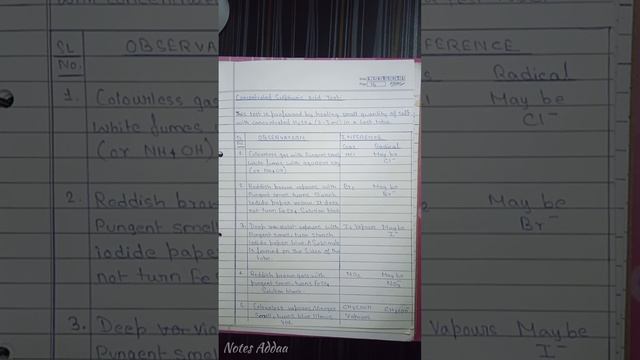 Concentrated Sulphuric Acid Test:
This test is performed by heating small quantity of salt
with concentrated H2SO4 (2-3 mL) in a test tube.
SL No. OBSERVATION INFERENCE
Gas Radical
1. Colourless gas with Pungent smell HCl May be
white fumes with aqueous Cl-
(or NH4OH)
2. Reddish brown vapours with Br2 May be
Pungent smell turns Starch Br-
iodide paper. It does
not turn FeSO4 Solution black
3. Deep violet vapours with I2 Vapours May be
Pungent smell, turn starch I-
iodide paper blue. A Sublimate
is formed on the sides of the
tube.
4. Reddish brown gas with NO2 May be
pungent smell, turns FeSO4 NO3-
Solution black.
5. Colourless vapours, Vinegar CH3COOH CH3COO-
Smell, turns blue litmus Vapours
red.
SL No. OBSERVA
1. Colourless gas
white fumes
(or NH4OH)
2. Reddish brow
Pungent smell
iodide pape
not turn Fe
3. Deep vio
Pungent smell
FERENCE
Radical
May be
Cl-
May be
Br-
Vapours May be
I-
Notes Addaa